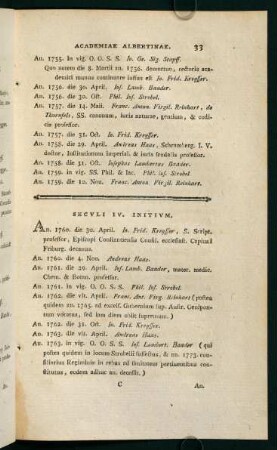 ACADEMIAE ALBERTINAE. 33
An. 1755. in vig. O. O. S. S. Jo. Ge. Sig. Stapff.
Quo autem die 5. Martii an. 1756. demortuo, rectoris aca-
demici munus continuare iussus est Jo. Frid. Kreyser.
An. 1756. die 30. April. Jos. Lamb. Baader.
An. 1756. die 30. Oct. Phil. Jos. Strobel.
An. 1757. die 14. Maii. Franc. Anton. Virgil. Reinhart, de
Thurnfels, SS. canonum, iuris naturae, gentium, & codi-
cis professor.
An. 1757. die 31. Oct. Jo. Frid. Kreyser.
An. 1758. die 29. April. Andreas Haas, I. V.
doctor, Institutionum Imperial. & iuris feudalis professor.
An. 1758. die 31. Oct. Josephus Lambertus Brader.
An. 1759. in vig. SS. Phil. & Iac. Phil. Jos. Strobel
An. 1759. die 10. Nov. Franc. Anton. Virgil. Reinhart.
SECULI IV. INITIUM.
AN. 1760. die 30. April. Jo. Frid. Kreyser, S. Script.
professor, Episcopi Constantiensis Consil. ecclesiast. Capituli
Friburg. decanus.
An. 1760. die 4. Nov. Andreas Haas.
An. 1761. die 29. April. Jos. Lamb. Baader, mater. medic.
Chem. & Botan. professor.
An. 1761. in vig. O. O. S. S. Phil. Jos. Strobel.
An. 1762. die vlt. April. Franc. Ant. Virg. Reinhart (postea
quidem an. 1765. ad excels. Gubernium sup. Austr. Oeniponta-
num vocatus, sed loco diem obiit supremum.)
An. 1762. die 31. Oct. Jo. Frid. Kreyser.
An. 1763. die vlt. April. Andreas Haas.
An. 1763. in vig. O. O. S. S. Jos. Lambert. Baader (qui
postea quidem in locum Strobelii suffectus, & an. 1773. con-
siliarius Regiminis in rebus ad studiorum pertinentibus con-
stitutus, eodem adhuc an. decessit.)
C An.